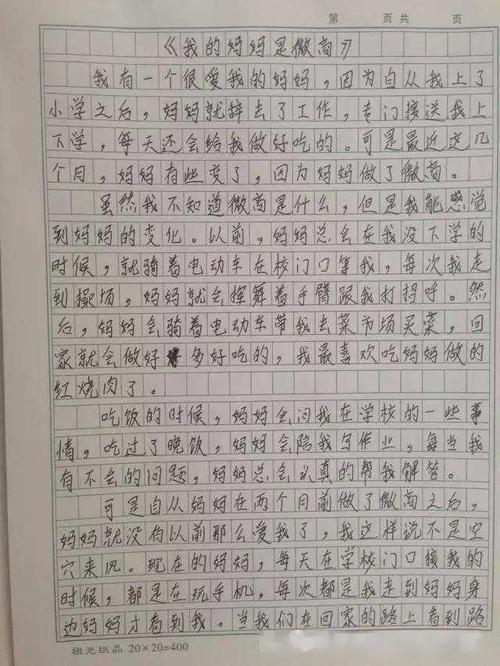 第 页共 页
《我的妈妈是微商》
我有一个很爱我的妈妈，因为自从我上了
小学之后，妈妈就辞去了工作，专门接送我上
下学，每天还会给我做好吃的。可是最近这几
个月，妈妈有些变了，因为妈妈做了微商。
虽然我不知道微商是什么，但是我能感觉
到妈妈的变化。以前，妈妈总会在我没下学的
时候，就骑着电动车在校门口等我，每次我走
到操场，妈妈就会挥舞着手臂跟我打招呼。然
后，妈妈会骑着电动车带我去菜市场买菜，回
家就会做好多好吃的，我最喜欢吃妈妈做的
红烧肉了。
吃饭的时候，妈妈会问我在学校的一些事
情，吃过了晚饭，妈妈会陪我写作业，每当我
有不会的问题，妈妈总会认真的帮我解答。
可是自从妈妈在两个月前做了微商之后，
妈妈就没有以前那么爱我了，我这样说不是空
穴来风。现在的妈妈，每天在学校门口接我的
时候，都是在玩手机，每次都是我走到妈妈身
边妈妈才看到我。当我们在回家的路上看到路
祖光纸品 20×20=400